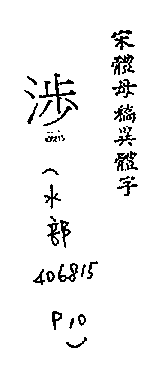 宋體母稿異體字
渉
(水部
406815
P10)